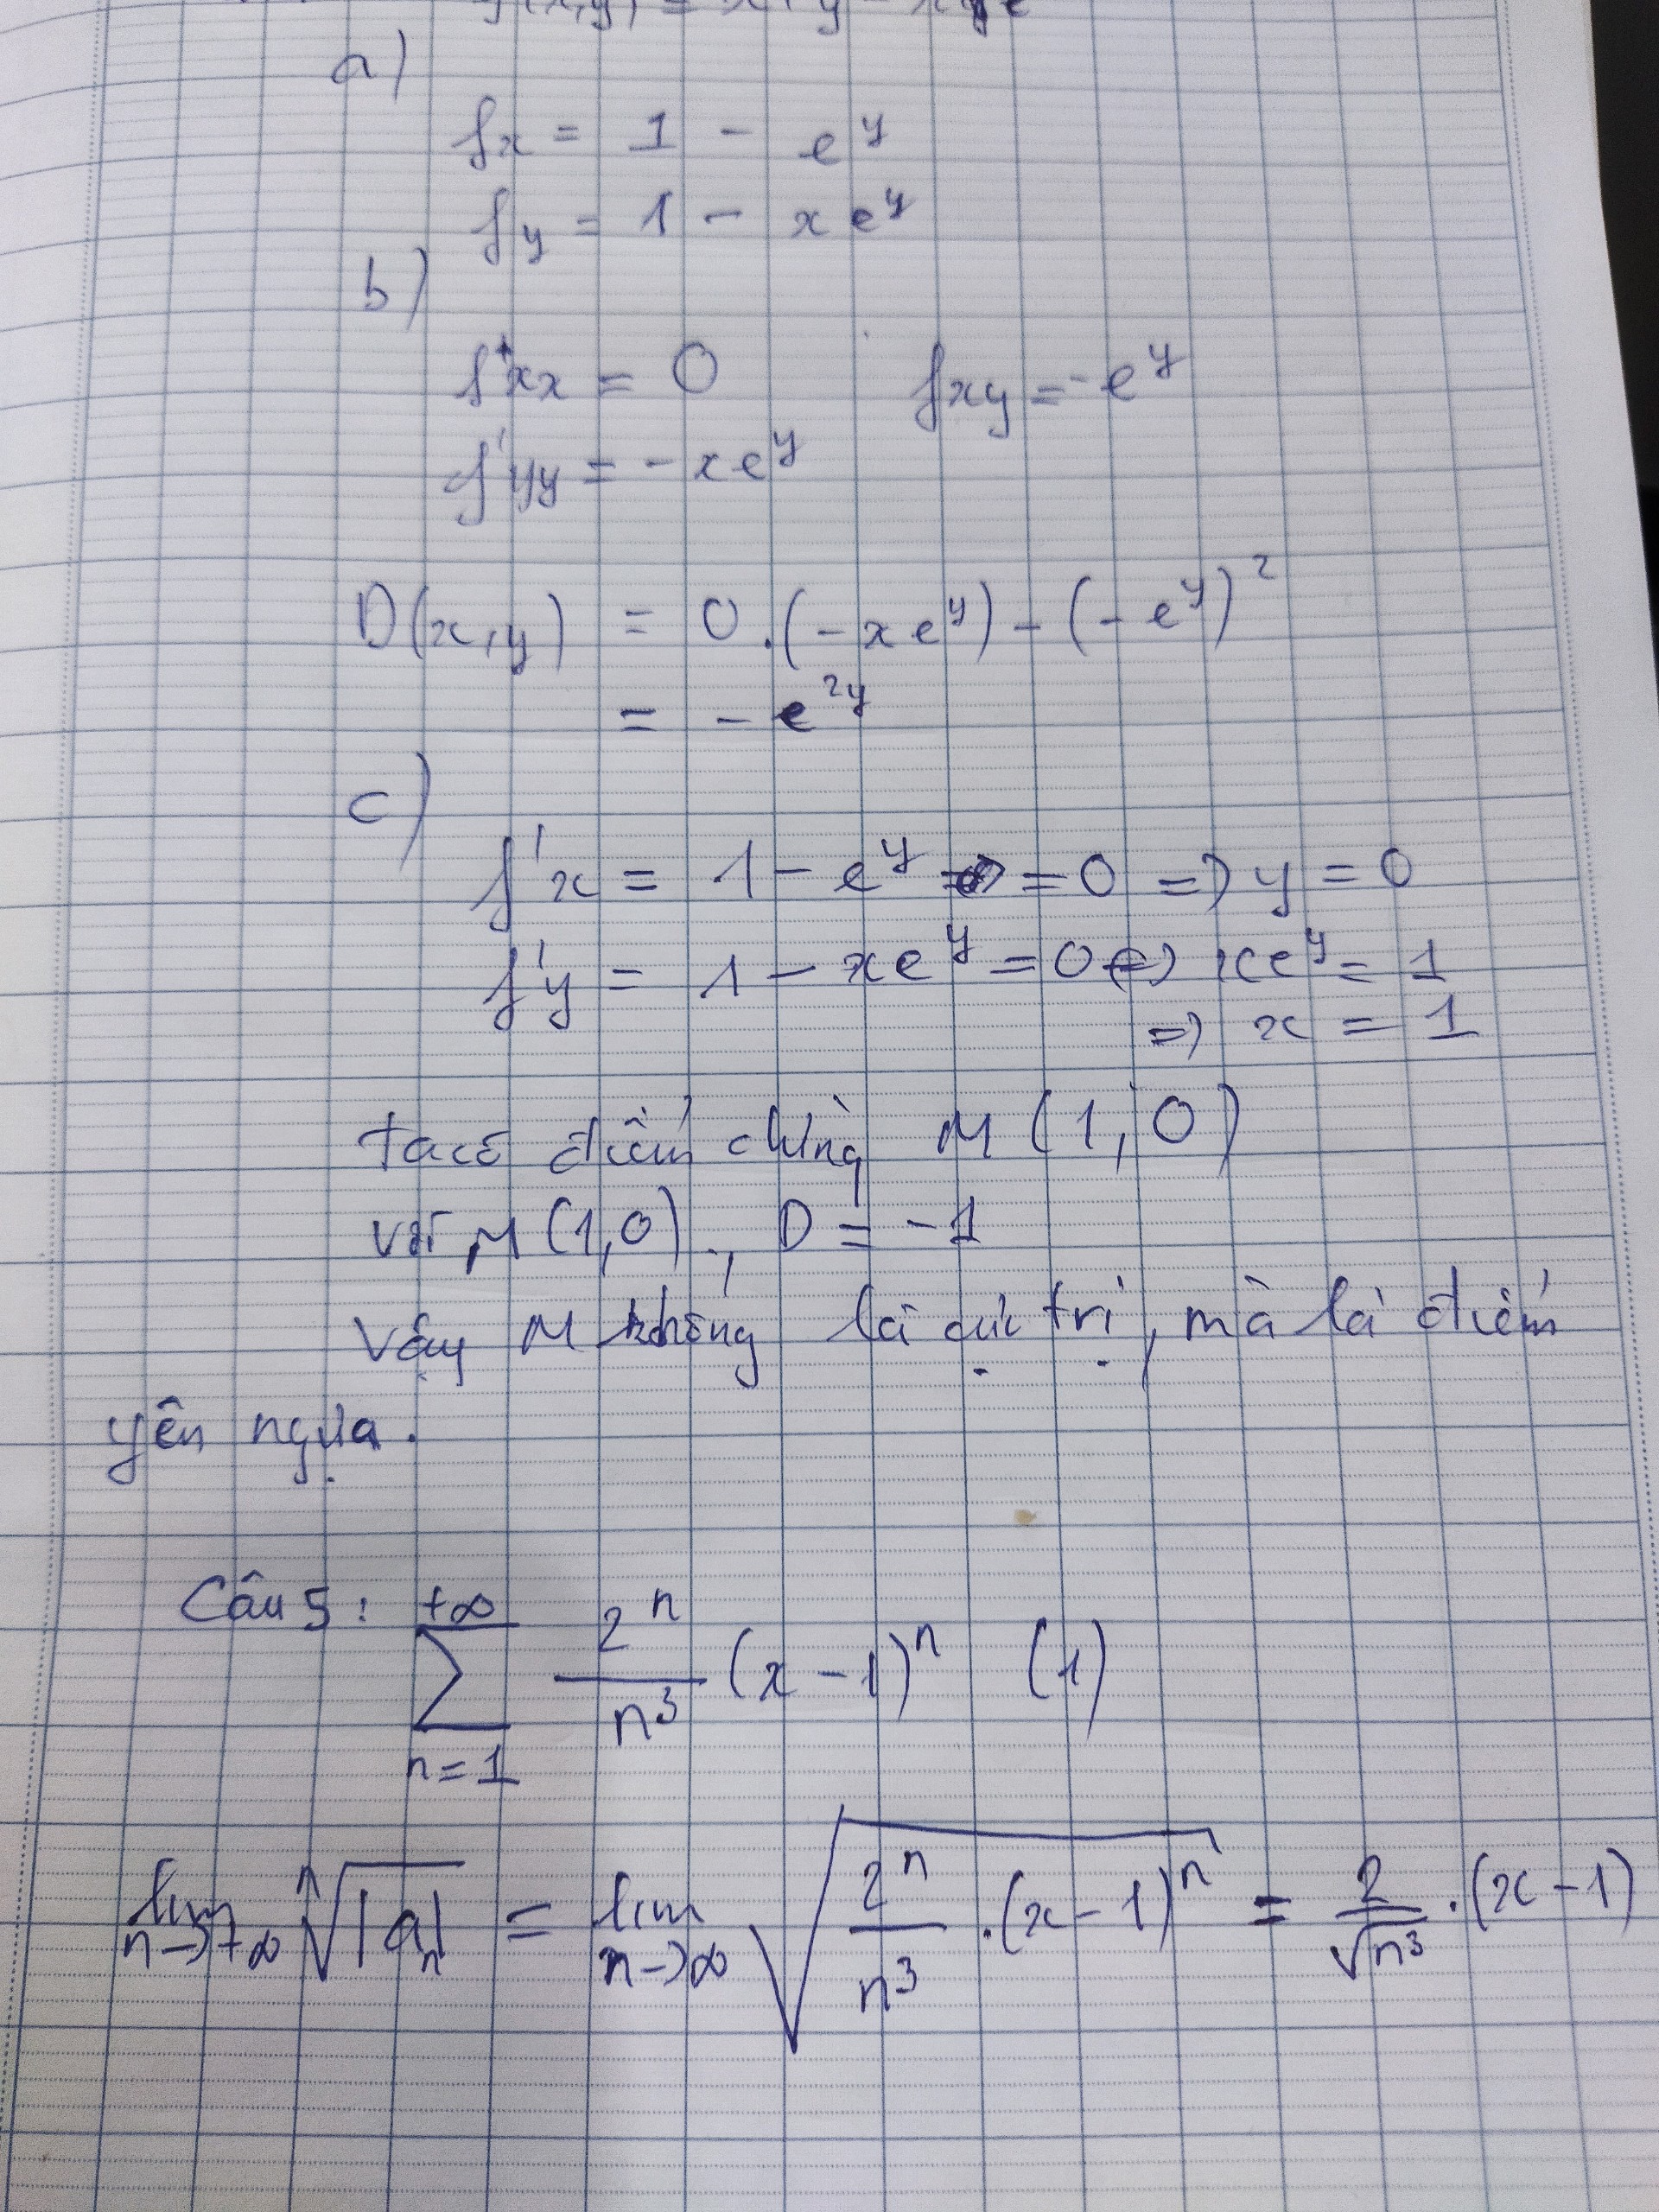 a)
fx = 1 - e^y
fy = 1 - xe^y
b)
f'xx = 0 fxy = -e^y
f'yy = -xe^y
D(x,y) = 0.(-xe^y) - (-e^y)^2
= -e^2y
c)
f'x = 1 - e^y = 0 => y = 0
f'y = 1 - xe^y = 0 <=> xe^y = 1
=> x = 1
ta có điểm dừng M(1,0)
với M(1,0), D = -1
Vậy M không là cực trị, mà là điểm
yên ngựa.
Câu 5: +∞ ∑ n=1 2^n/n^3 (x-1)^n (1)
lim n->+∞ ⁿ√|aₙ| = lim n->∞ √(2^n/n^3 .(x-1)^n) = 2/√n^3 .(x-1)